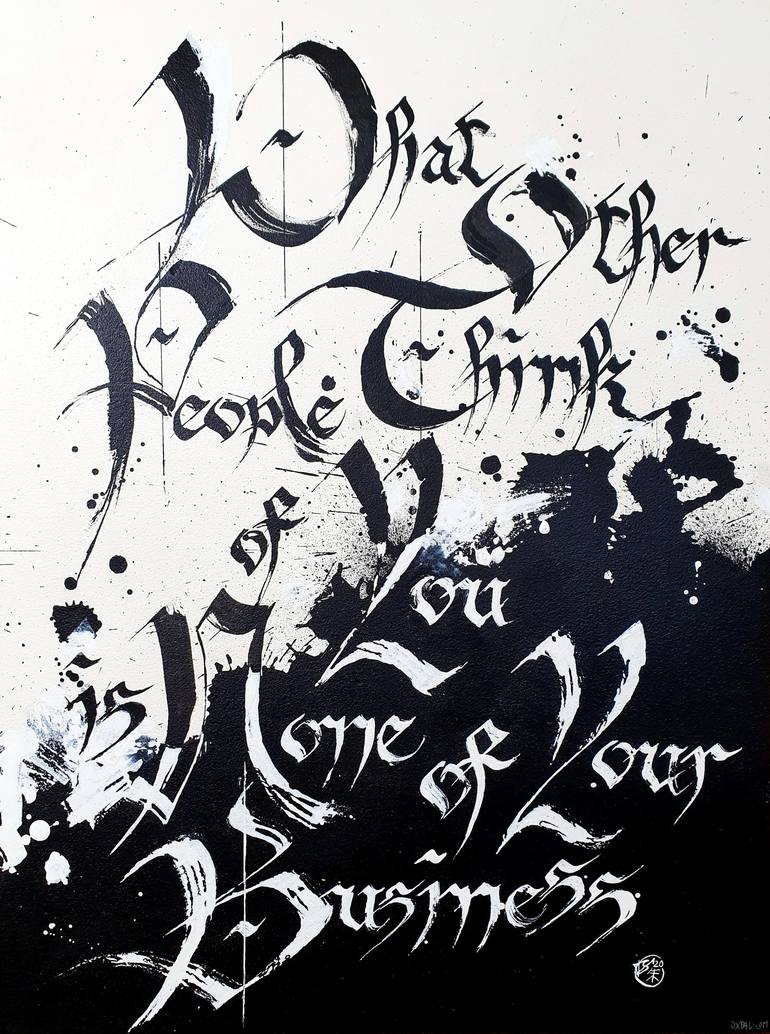 What
Other
People Think
of Yoü
is None
of Your
Business